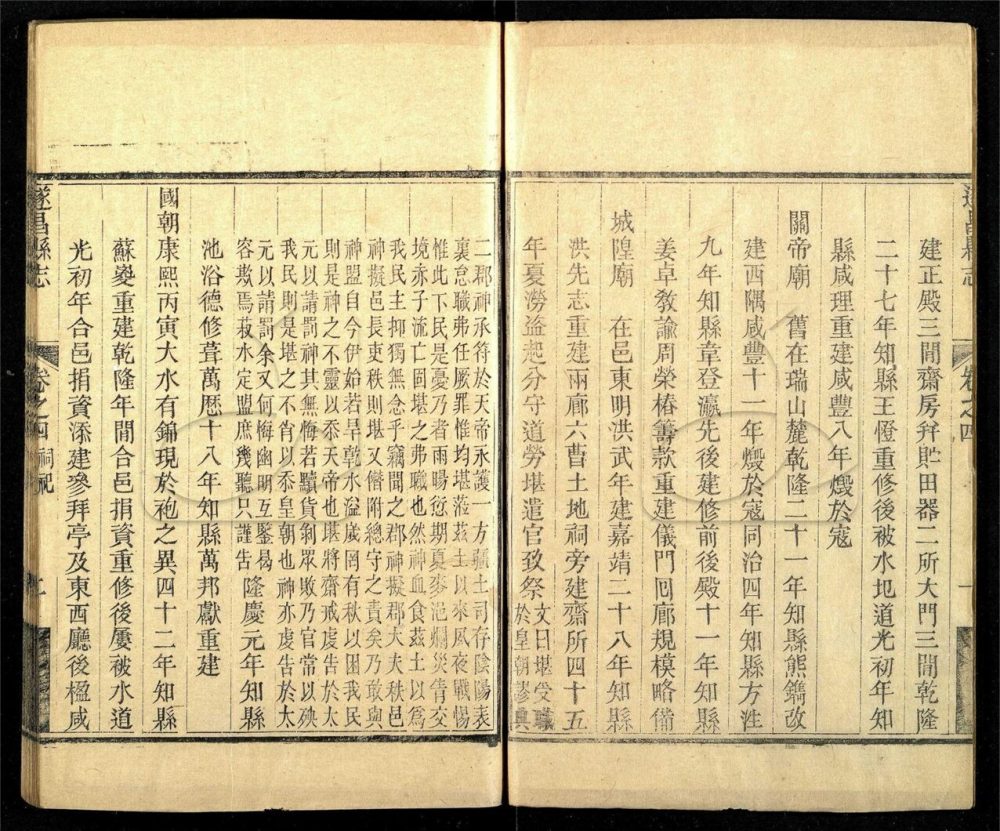 遂昌縣志
卷之四
建正殿三間齋房幷貯田器二所大門三間乾隆
二十七年知縣王憕重修後被水圮道光初年知
縣咸理重建咸豐八年燬於寇
關帝廟 舊在瑞山麓乾隆二十一年知縣熊鐫改
建西隅咸豐十一年燬於寇同治四年知縣方洤
九年知縣韋登瀛先後建修前後殿十一年知縣
姜卓敎諭周榮椿籌款重建儀門囘廊規模略備
城隍廟 在邑東明洪武年建嘉靖二十八年知縣
洪先志重建兩廊六曹土地祠旁建齋所四十五
年夏澇盜起分守道勞堪遣官致祭文曰堪受職
於皇朝
二郡神承符於天帝承護一方疆土司存陰陽表
裏怠職弗任厥罪惟均堪蒞茲土以來夙夜戰惕
惟此下民是憂乃者雨暘愆期夏麥浥爛災眚交
境赤子流亡回堪之弗職也然神血食茲土以爲
我民主抑獨無念乎竊聞之郡神擬郡大夫秩邑
神擬邑長吏秩則堪又僭附總守之責矣乃敢與
神盟自今伊始若旱乾水溢歲罔有秋以困我民
則是神之不靈以忝天帝也堪將齋戒虔告於太
元以請罰神其無悔若黷貨剝眾敗乃官常以殃
我民則是堪之不肖以忝皇朝也神亦虔告於太
元以請罰余又何悔幽明互鑒曷
容欺焉菽水定盟庶幾聽只謹告 隆慶元年知縣
池浴德修葺萬歷十八年知縣萬邦獻重建
國朝康熙丙寅大水有錦現於袍之異四十二年知縣
蘇夔重建乾隆年間合邑捐資重修後屢被水道
光初年合邑捐資添建參拜亭及東西廳後楹咸
遂昌縣志
卷之四 祠祀
七